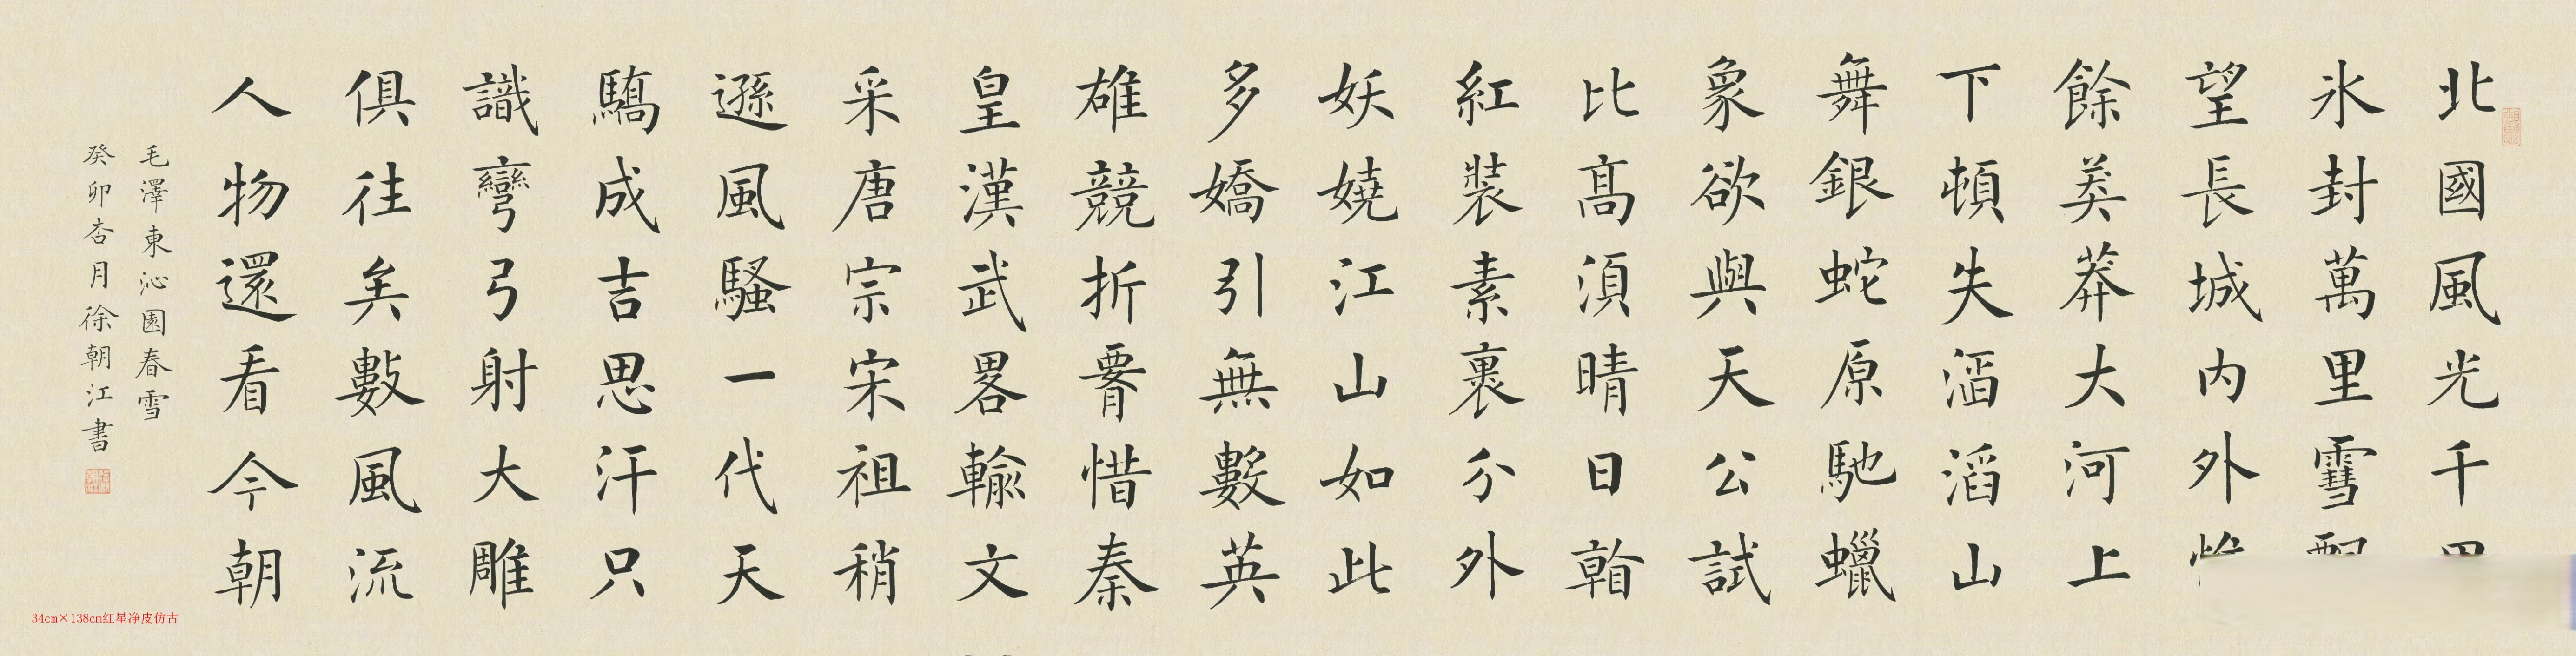 北國風光千
氷封萬里雪
望長城内外
餘莽莽大河上
下頓失滔滔山
舞銀蛇原馳蠟
象欲與天公試
比髙湏晴日看
紅裝素裹分外
妖嬈江山如此
多嬌引無數英
雄競折腰惜秦
皇漢武畧輸文
采唐宗宋祖稍
遜風騷一代天
驕成吉思汗只
識彎弓射大雕
俱往矣數風流
人物還看今朝
毛澤東沁園春雪
癸卯杏月徐朝江書
34cm×138cm红星净皮仿古